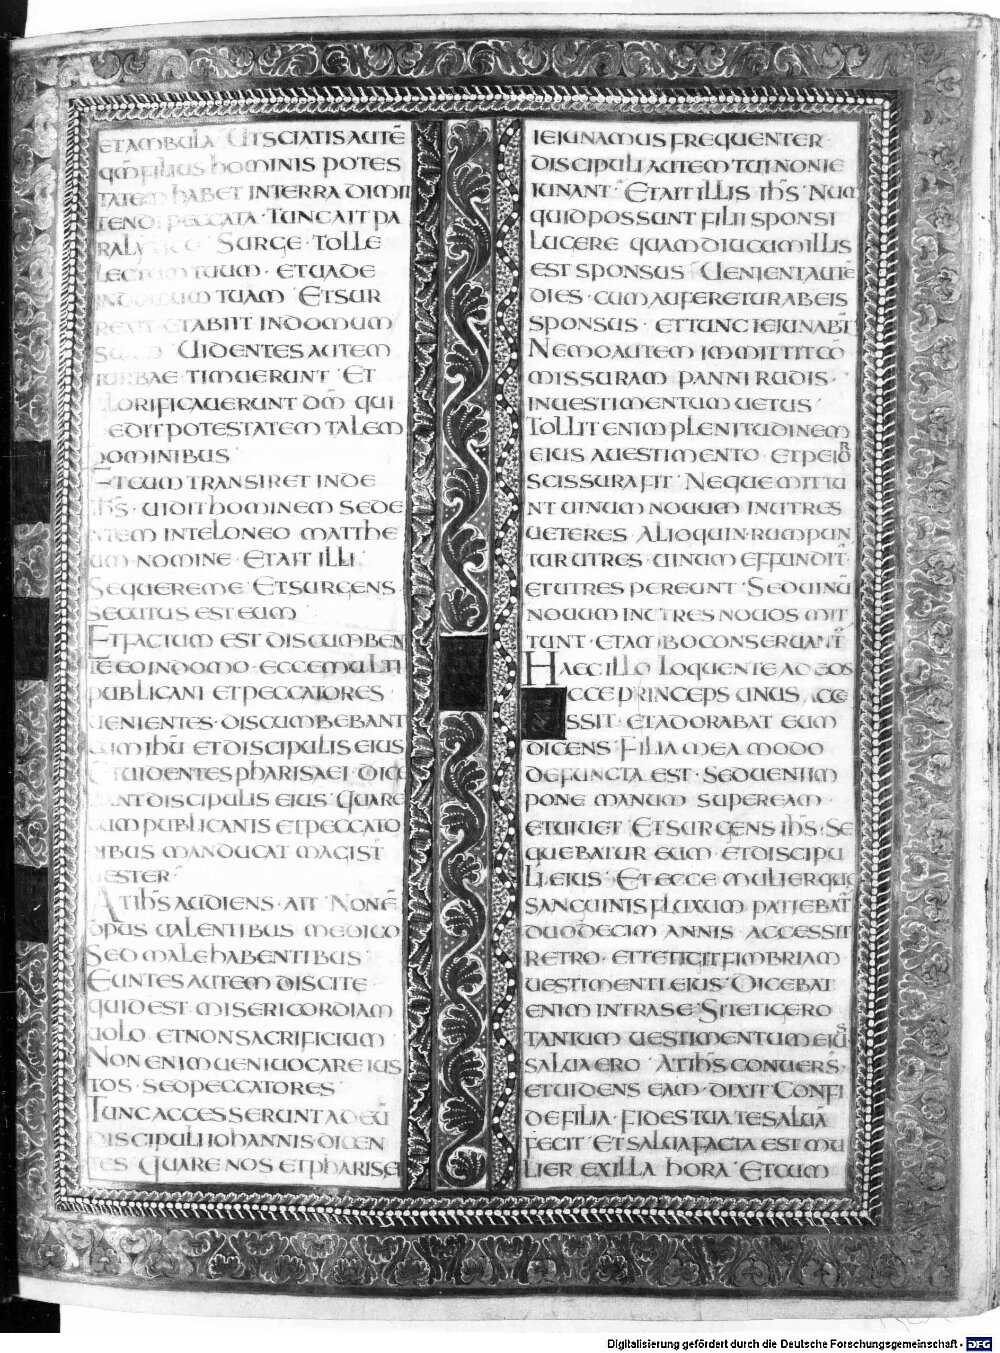 ETAMBULA · UTSCIATISAUTĒ
QM̄FILIUS HOMINIS POTES
TATEM HABET INTERRA DIMIT
TENDI PECCATA · TUNCAIT PA
RALYTICO · SURGE · TOLLE
LECTUM TUUM · ETUADE
INDOMUM TUAM · ETSUR
REXIT ETABIIT INDOMUM
SUAM · UIDENTES AUTEM
TURBAE · TIMUERUNT · ET
LORIFICAUERUNT DM̄ QUI
EDITPOTESTATEM TALEM
HOMINIBUS ·
ETCUM TRANSIRET INDE
IHS̄ · UIDITHOMINEM SEDE
NTEM INTELONEO MATTHE
UM · NOMINE · ETAIT ILLI ·
SEQUEREME · ETSURGENS ·
SECUTUS EST EUM
ETFACTUM EST DISCUMBEN
TE EO INDOMO · ECCEMULTI
PUBLICANI ETPECCATORES ·
UENIENTES · DISCUMBEBANT
CUM IHŪ ETDISCIPULIS EIUS
ETUIDENTES PHARISAEI · DICE
BANTDISCIPULIS EIUS · QUARE
CUM PUBLICANIS ETPECCATO
RIBUS MANDUCAT MAGIST̄
UESTER ·
ATIHS̄ AUDIENS · AIT · NONĒ
OPUS UALENTIBUS MEDICO
SEDMALEHABENTIBUS ·
EUNTES AUTEM DISCITE ·
QUIDEST · MISERICORDIAM
UOLO · ETNON SACRIFICIUM ·
NON ENIM UENIUOCARE IUS
TOS · SEDPECCATORES ·
TUNC ACCESSERUNT AD EŪ
DISCIPULI IOHANNIS · DICEN
TES · QUARE NOS ETPHARISEI
IEIUNAMUS FREQUENTER ·
DISCIPULI AUTEM TUI NON IE
IUNANT · ETAIT ILLIS IHS̄ · NUM
QUIDPOSSUNT FILII SPONSI
LUGERE QUAMDIUCUMILLIS
EST SPONSUS · UENIENTAUTĒ
DIES · CUM AUFERETUR AB EIS
SPONSUS · ETTUNC IEIUNABT̄
NEMOAUTEM IMMITTIT CŌ
MISSURAM PANNI RUDIS ·
INUESTIMENTUM UETUS ·
TOLLIT ENIM PLENITUDINEM
EIUS AUESTIMENTO · ETPEIOR
SCISSURAFIT · NEQUE MITTU
NT UINUM NOUUM INUTRES
UETERES · ALIOQUIN · RUMPUN
TUR UTRES · UINUM EFFUNDIT̄ ·
ETUTRES PEREUNT · SEDUINŪ
NOUUM INUTRES NOUOS MIT
TUNT · ETAMBOCONSERUANT̄
HAEC ILLO LOQUENTE AD EOS
ECCE PRINCEPS UNUS ACCE
SSIT · ETADORABAT EUM
DICENS · FILIA MEA MODO
DEFUNCTA EST · SEDUENI IM
PONE MANUM SUPEREAM ·
ETUIUET · ETSURGENS IHS̄ · SE
QUEBATUR EUM · ETDISCIPU
LI EIUS · ET ECCE MULIERQUĘ
SANGUINIS FLUXUM PATIEBAT̄
DUODECIM ANNIS · ACCESSIT
RETRO · ETTETIGITFIMBRIAM
UESTIMENTI EIUS · DICEBAT
ENIM INTRASE · SITETIGERO
TANTUM UESTIMENTUM EIUS ·
SALUA ERO · ATIHS̄ CONUERS̄;
ETUIDENS EAM · DIXIT · CONFI
DE FILIA · FIDES TUA TE SALUĀ
FECIT · ETSALUAFACTA EST MU
LIER EXILLA HORA · ETCUM
Digitalisierung gefördert durch die Deutsche Forschungsgemeinschaft - DFG